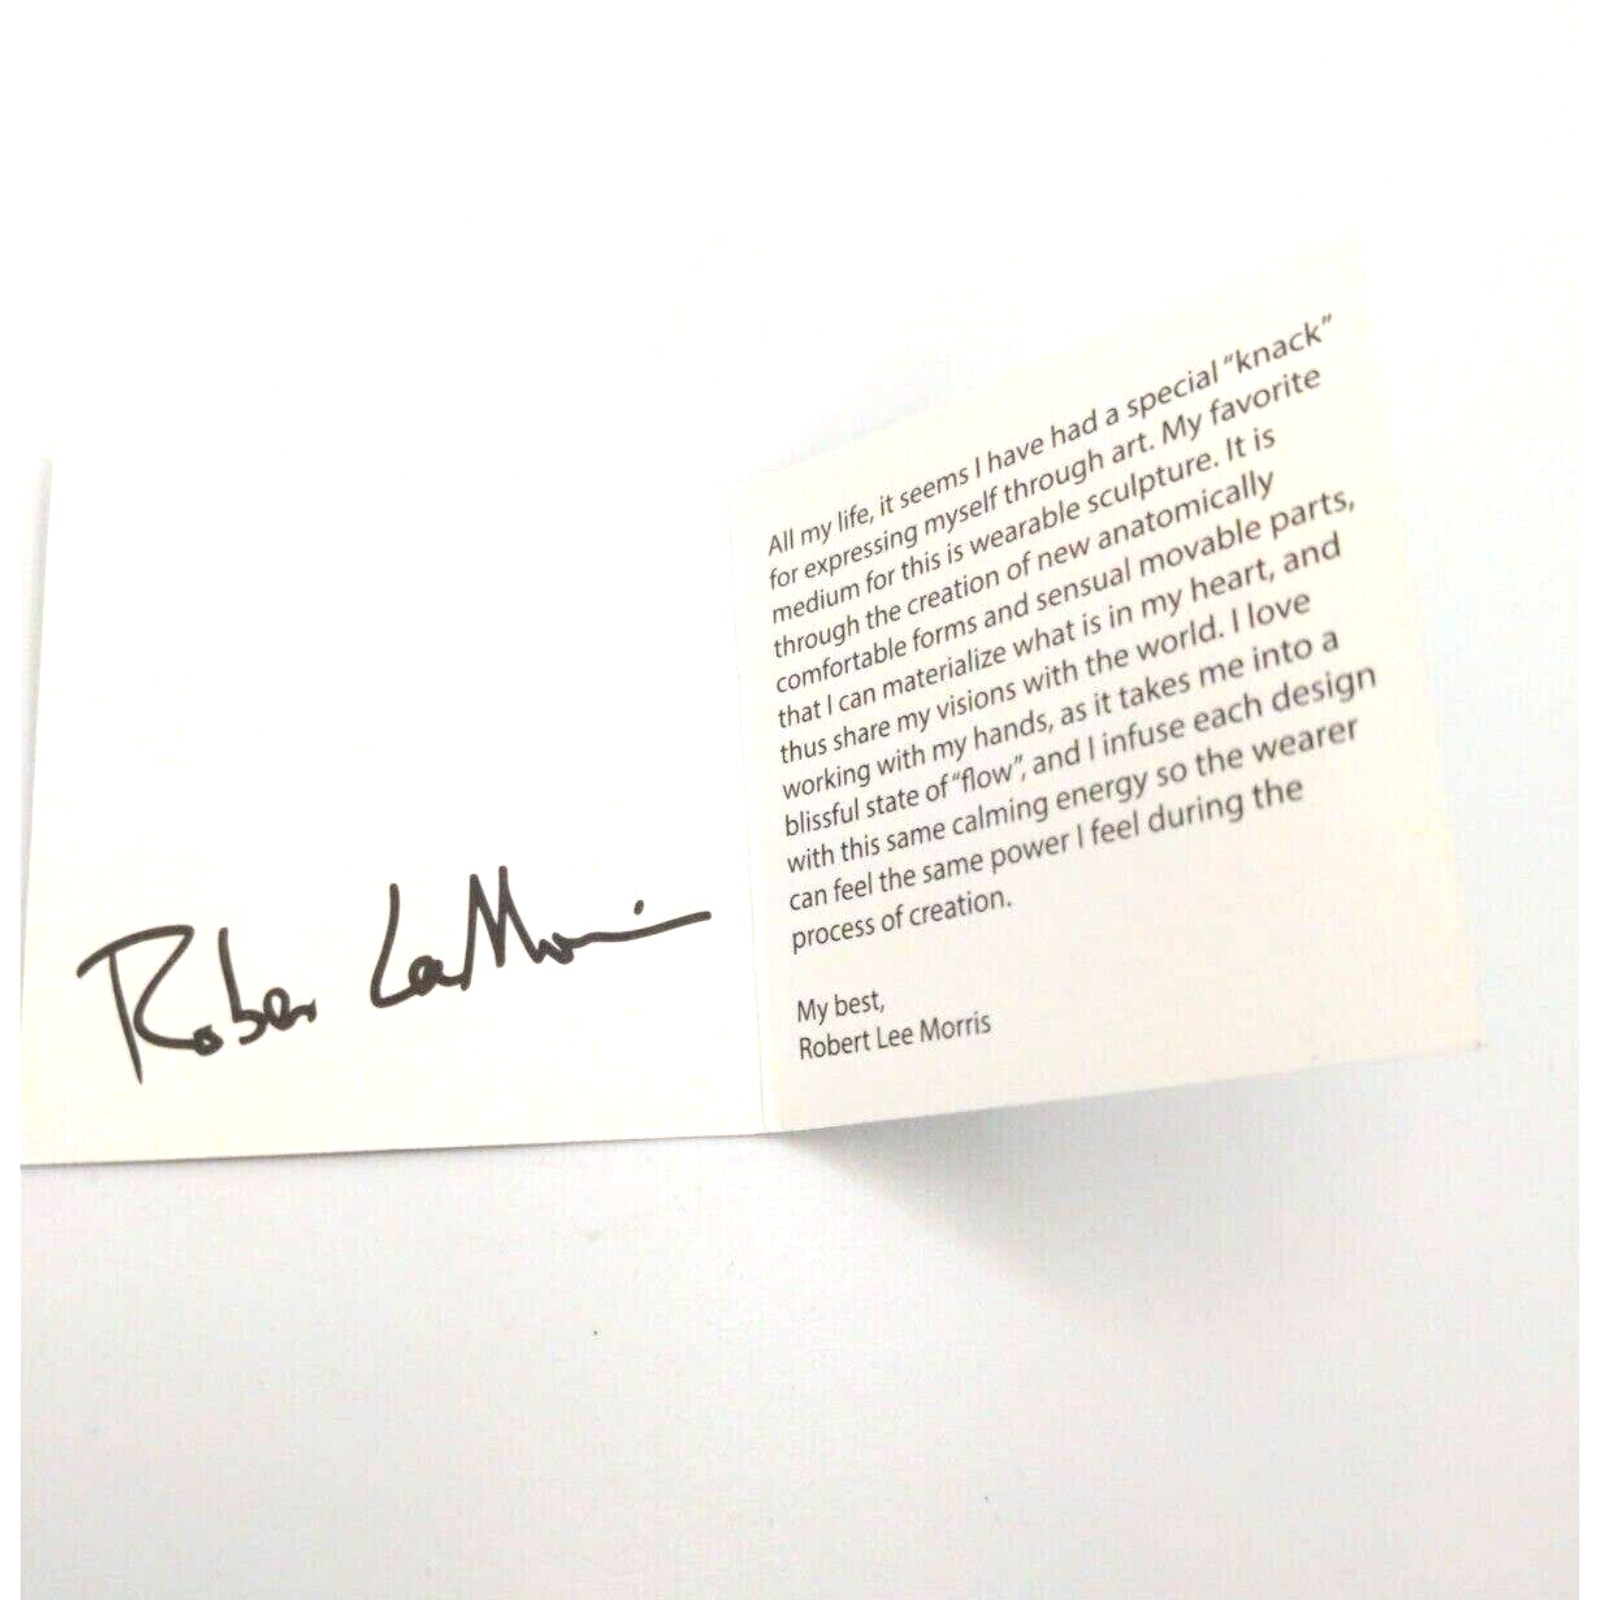 Robert Lee Morris
All my life, it seems I have had a special “knack”
for expressing myself through art. My favorite
medium for this is wearable sculpture. It is
through the creation of new anatomically
comfortable forms and sensual movable parts,
that I can materialize what is in my heart, and
thus share my visions with the world. I love
working with my hands, as it takes me into a
blissful state of “flow”, and I infuse each design
with this same calming energy so the wearer
can feel the same power I feel during the
process of creation.
My best,
Robert Lee Morris